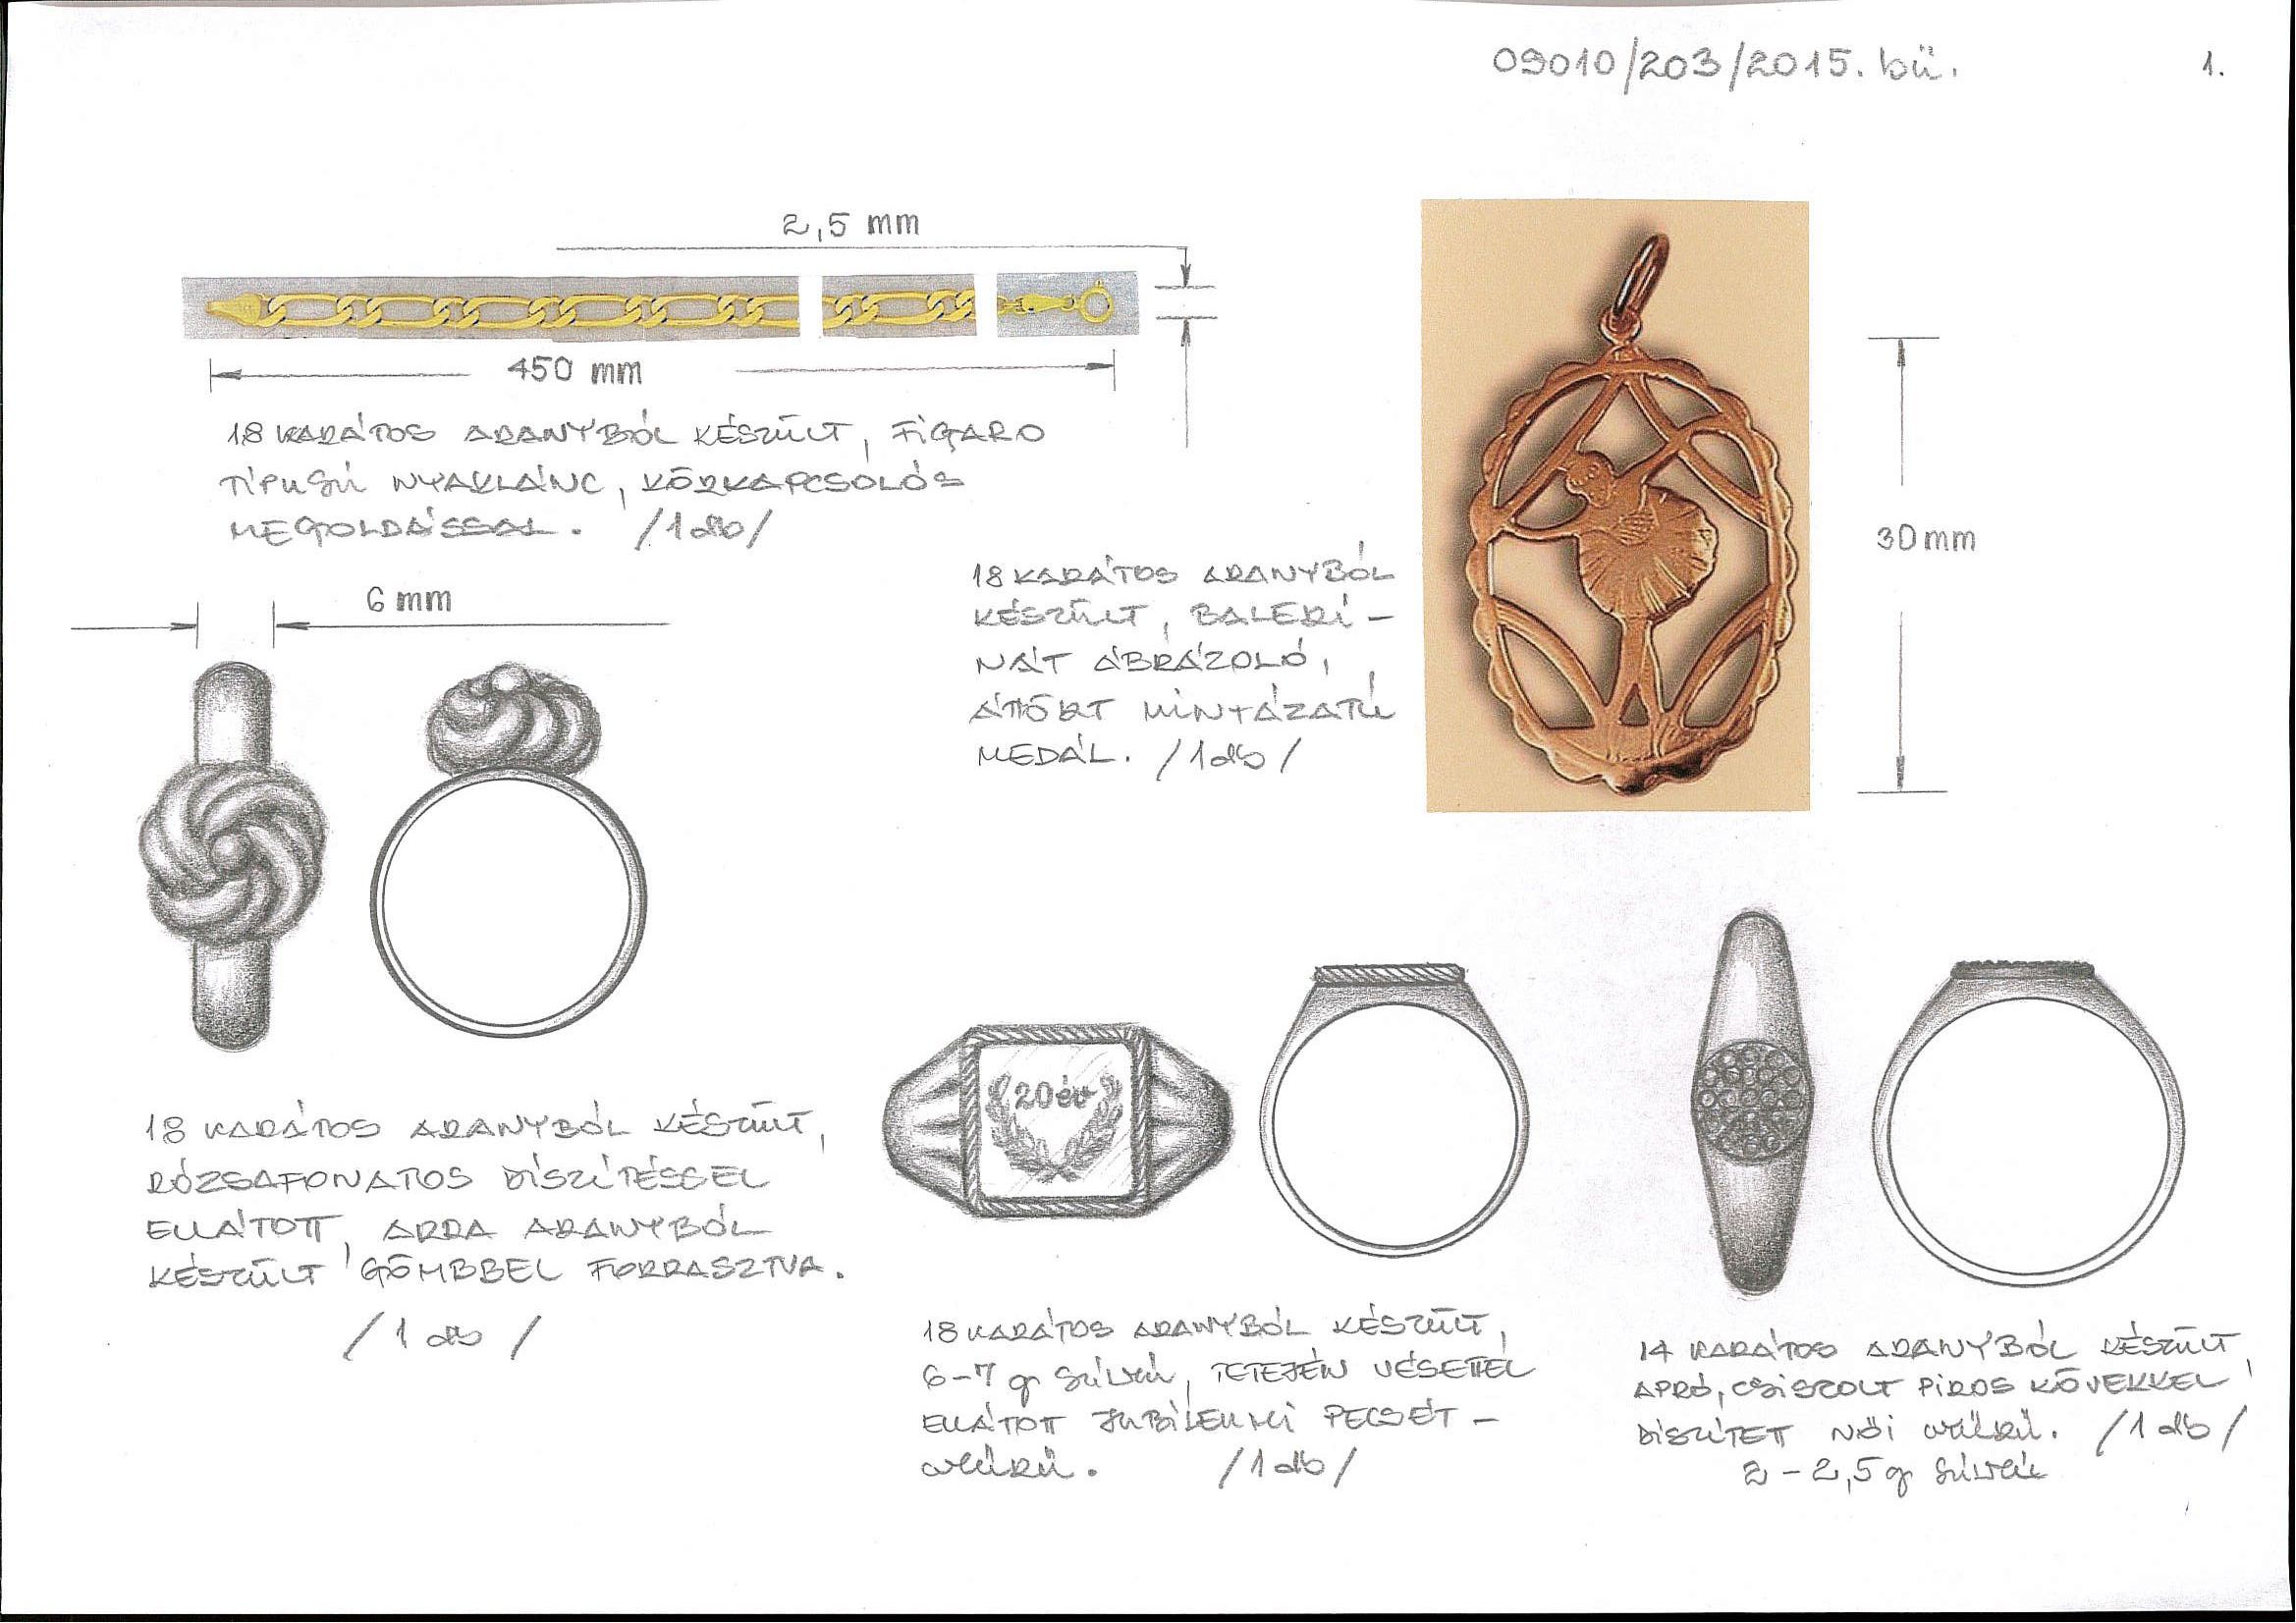 09010/203/2015. bü.
1.
2,5 mm
450 mm
18 KARÁTOS ARANYBÓL KÉSZÜLT, FIGARO
TÍPUSÚ NYAKLÁNC, KÖRKAPCSOLÓS
MEGOLDÁSSAL. /1 db/
30 mm
18 KARÁTOS ARANYBÓL
KÉSZÜLT, BALERI-
NÁT ÁBRÁZOLÓ,
ÁTTÖRT MINTÁZATÚ
MEDÁL. /1 db/
6 mm
18 KARÁTOS ARANYBÓL KÉSZÜLT,
RÓZSAFONATOS DÍSZÍTÉSSEL
ELLÁTOTT, ARRA ARANYBÓL
KÉSZÜLT GÖMBBEL FORRASZTVA.
/1 db/
20 év
18 KARÁTOS ARANYBÓL KÉSZÜLT,
6-7 gr súlyú, TETEJÉN VÉSETTEL
ELLÁTOTT JUBILEUMI PECSÉT-
GYŰRŰ. /1 db/
14 KARÁTOS ARANYBÓL KÉSZÜLT,
APRÓ, CSISZOLT PIROS KÖVEKKEL
DÍSZÍTETT NŐI GYŰRŰ. /1 db/
2-2,5 gr súlyú